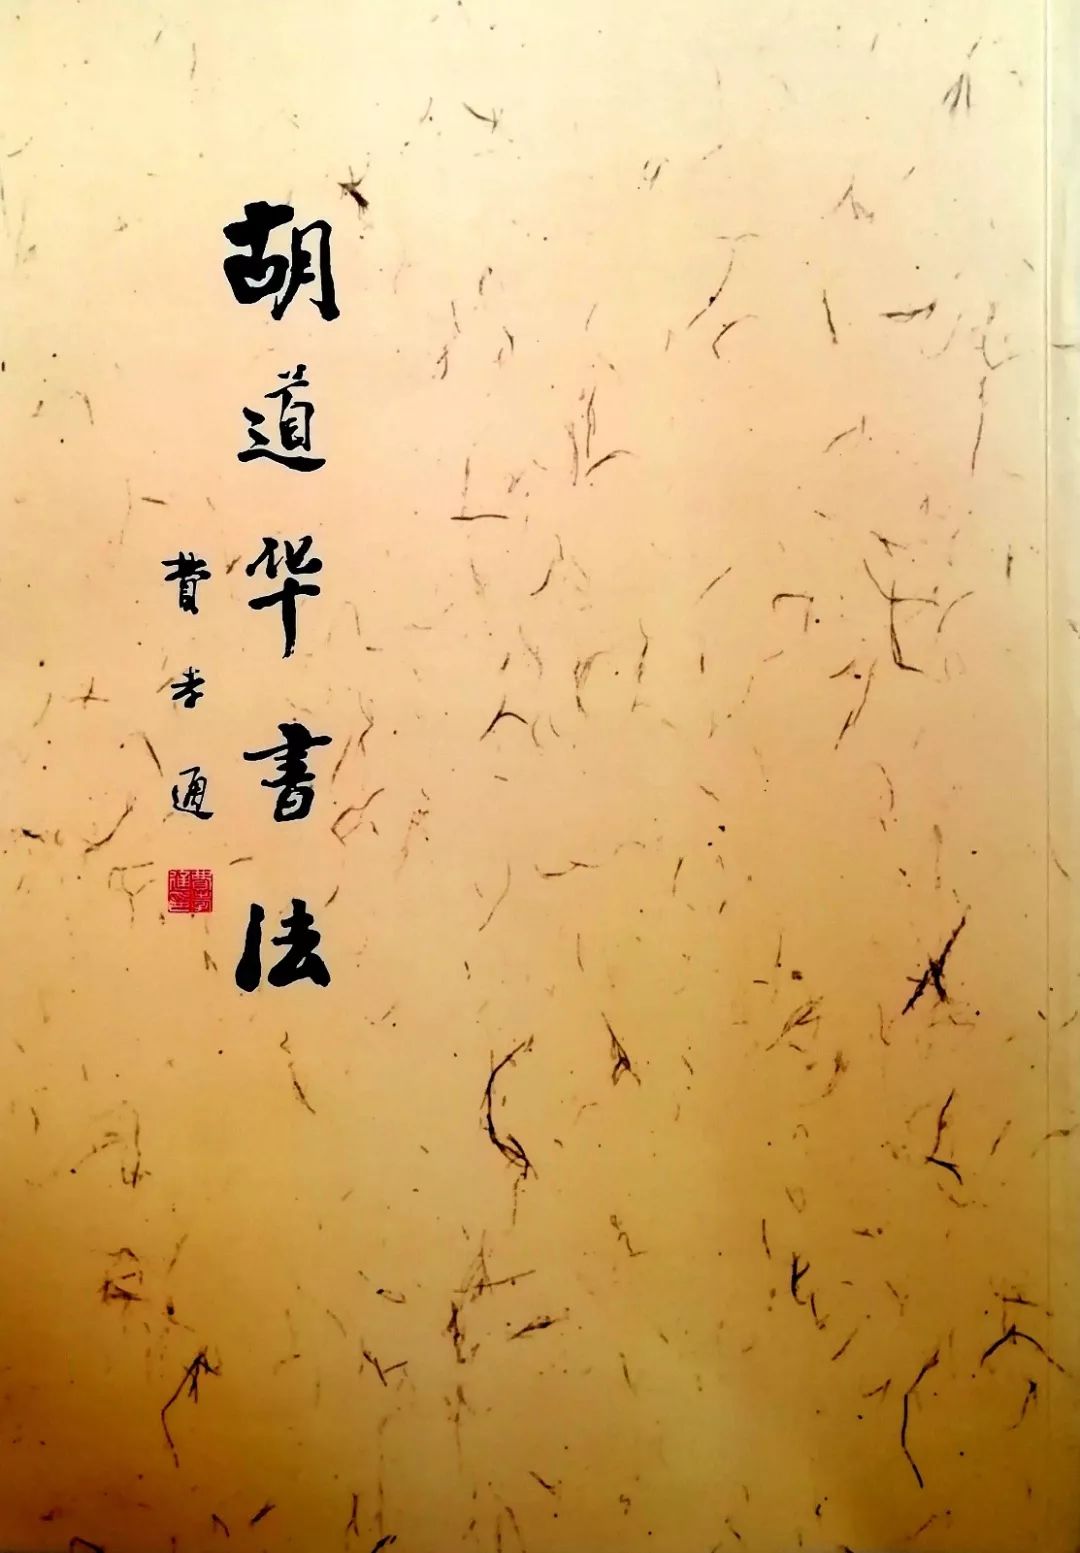 胡道华書法
費孝通